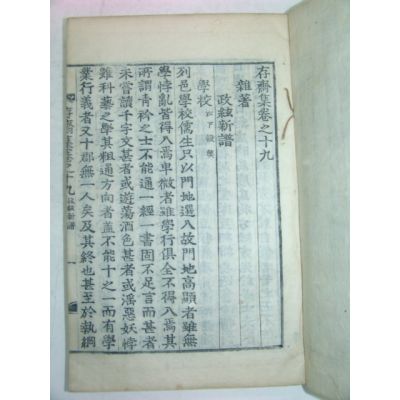 存齋集卷之十九
雜著
政絃新譜
學校
列邑學校儒生只以門地選入故門地高顯者雖無
學悖亂皆得入焉卑微者雖學行俱全不得入焉其
所謂靑衿之士不能通一經一書固不足言而甚者
未嘗讀千字文甚者或遊蕩酒色甚者或淫惡妖悖
雖科藝之學其粗通方向者盖不能十之一而有學
業行義者又十郡無一人矣及其終也甚至於執綱
存齋集卷之十九 政絃新譜 一